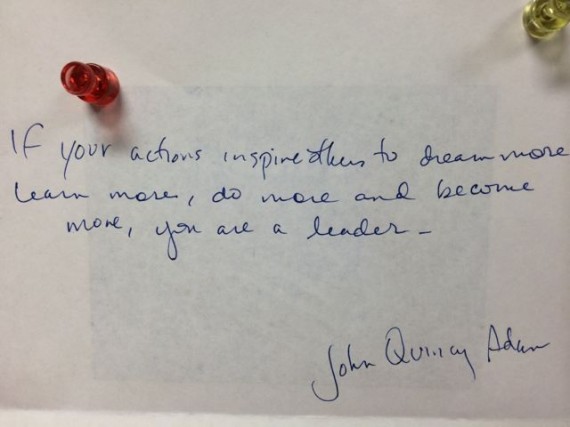 If your actions inspire others to dream more
learn more, do more and become
more, you are a leader -
John Quincy Adams